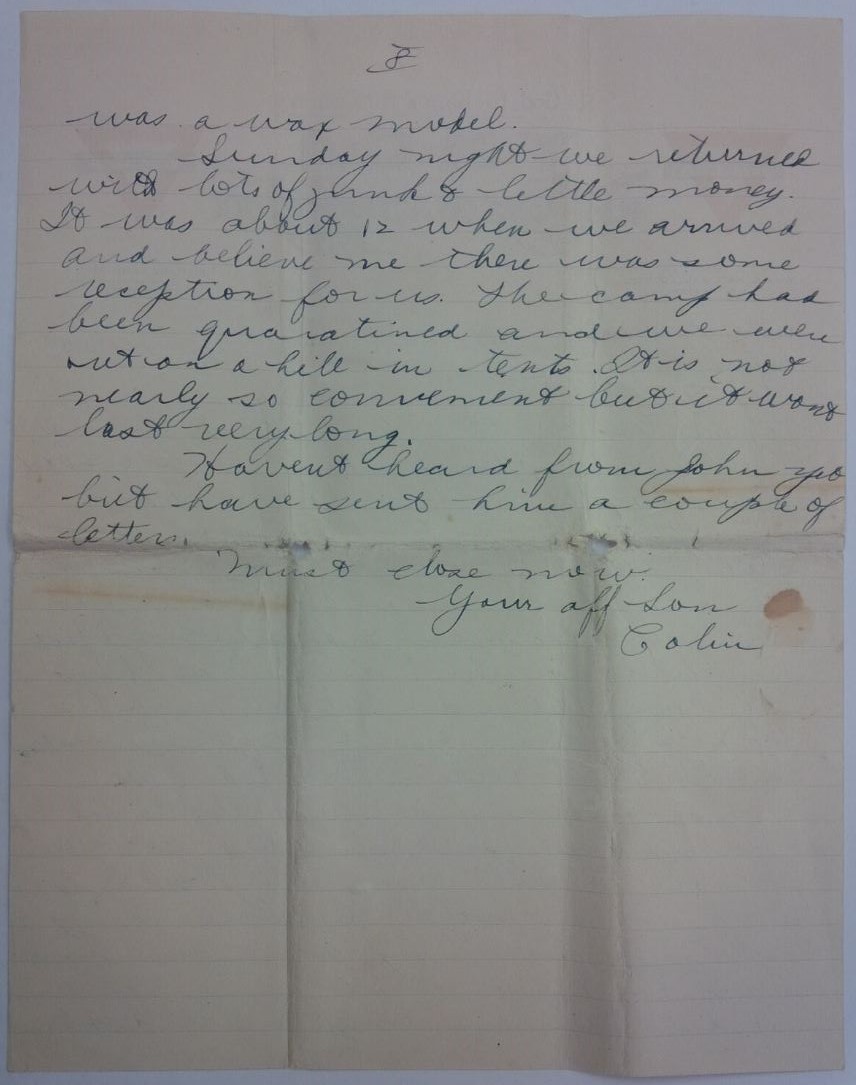 8
was a wax model.
Sunday night we returned
with lots of junk & little money.
It was about 12 when we arrived
and believe me there was some
reception for us. The camp had
been quaratined and we were
out on a hill in tents. It is not
nearly so convenient but it wont
last very long.
Havent heard from John yet
but have sent him a couple of
letters.
Must close now.
Your aff Son
Colin